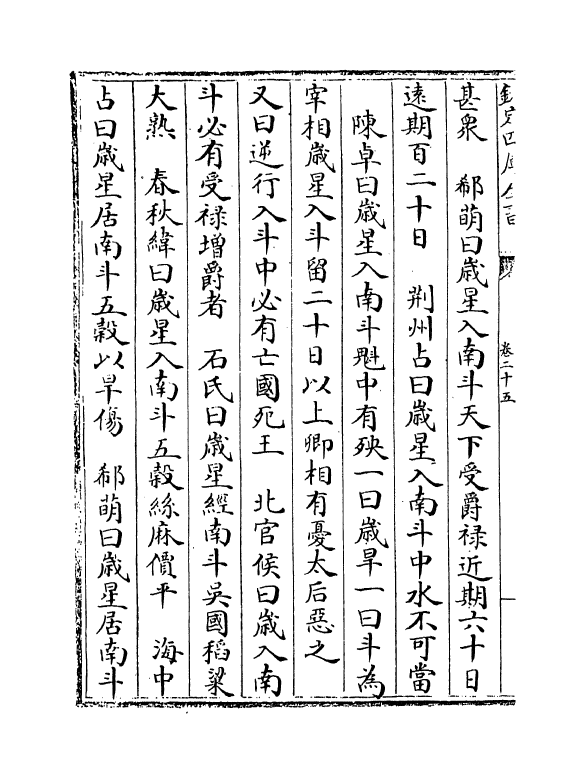 欽定四庫全書
卷二十五
甚衆　郗萌曰歲星入南斗天下受爵祿近期六十日
遠期百二十日　荆州占曰歲星入南斗中水不可當
陳卓曰歲星入南斗魁中有殃一曰歲旱一曰斗為
宰相歲星入斗留二十日以上卿相有憂太后惡之
又曰逆行入斗中必有亡國死王　北官候曰歲入南
斗必有受禄增爵者　石氏曰歲星經南斗吳國稻粱
大熟　春秋緯曰歲星入南斗五穀絲麻價平　海中
占曰歲星居南斗五穀以旱傷　郗萌曰歲星居南斗